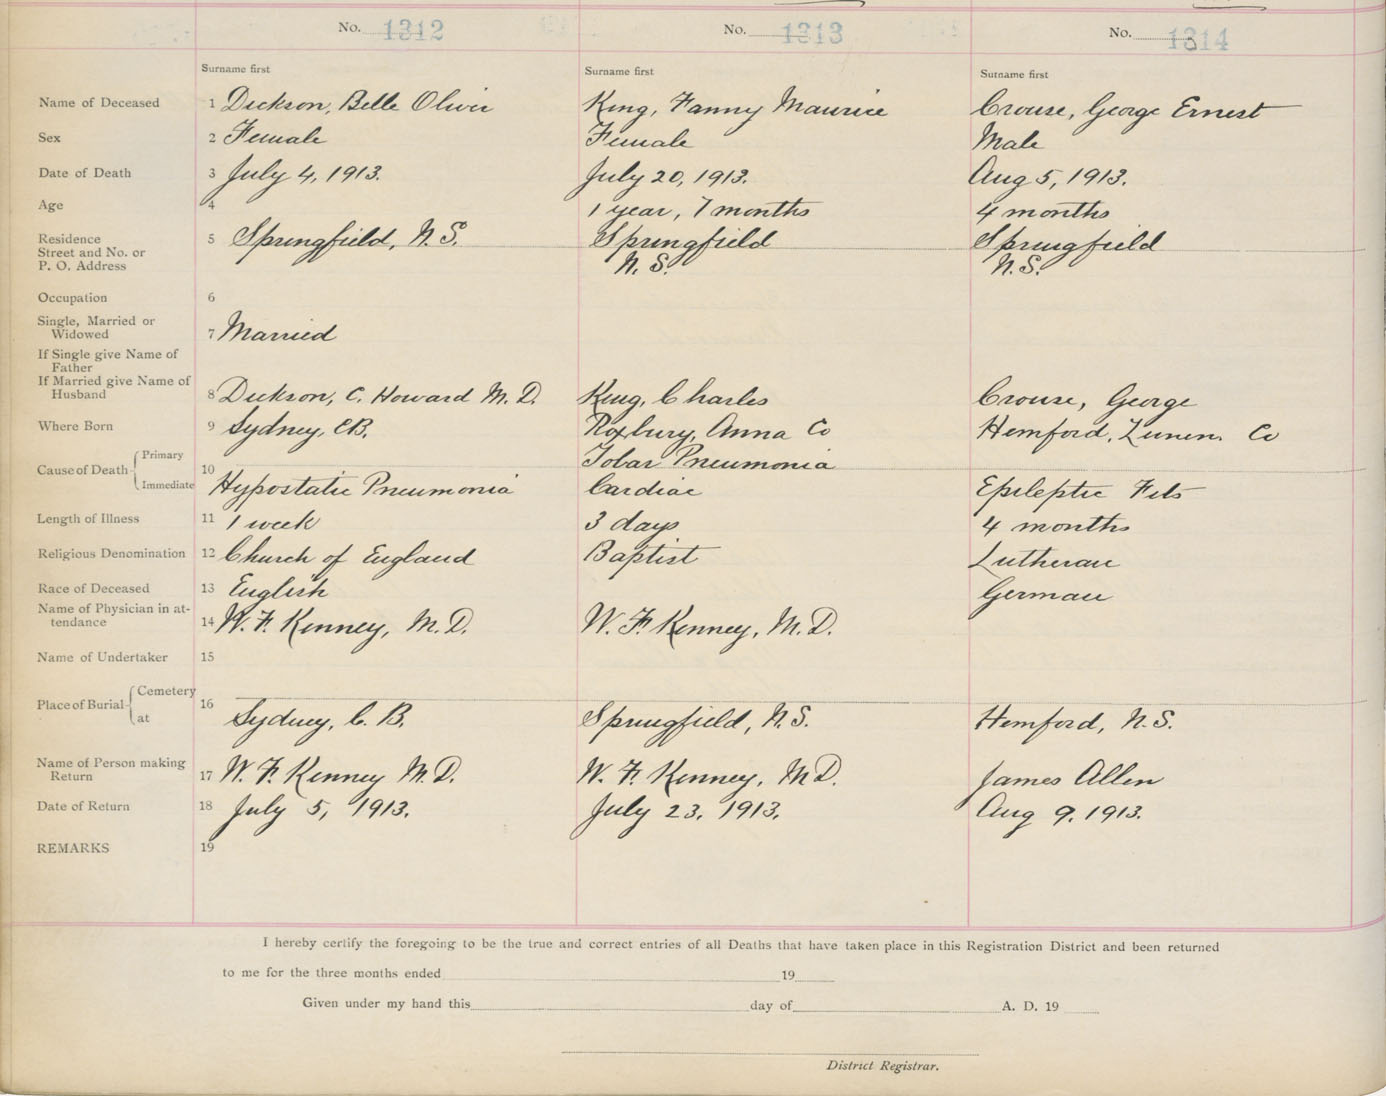 No. 1312 No. 1313 No. 1314
Surname first Surname first Surname first
Name of Deceased 1 Dickson, Belle Oliver King, Fanny Maurice Crouse, George Ernest
Sex 2 Female Female Male
Date of Death 3 July 4, 1913. July 20, 1913. Aug 5, 1913.
Age 4 1 year, 7 months 4 months
Residence 5 Springfield, N.S. Springfield Springfield
Street and No. or
P. O. Address N.S. N.S.
Occupation 6
Single, Married or
Widowed 7 Married
If Single give Name of
Father
If Married give Name of
Husband 8 Dickson, C. Howard M.D. King, Charles Crouse, George
Where Born 9 Sydney, CB. Roxbury, Anna Co Hemford, Lunen. Co
Cause of Death Primary 10 Lobar Pneumonia
Immediate Hypostatic Pneumonia Cardiac Epileptic Fits
Length of Illness 11 1 week 3 days 4 months
Religious Denomination 12 Church of England Baptist Lutheran
Race of Deceased 13 English German
Name of Physician in at-
tendance 14 W. F. Kenney, M.D. W. F. Kenney, M.D.
Name of Undertaker 15
Place of Burial Cemetery 16
at Sydney, C. B. Springfield, N.S. Hemford, N.S.
Name of Person making
Return 17 W. F. Kenney M.D. W. F. Kenney, M.D. James Allen
Date of Return 18 July 5, 1913. July 23, 1913. Aug 9. 1913.
REMARKS 19
I hereby certify the foregoing to be the true and correct entries of all Deaths that have taken place in this Registration District and been returned
to me for the three months ended 19
Given under my hand this day of A. D. 19
District Registrar.